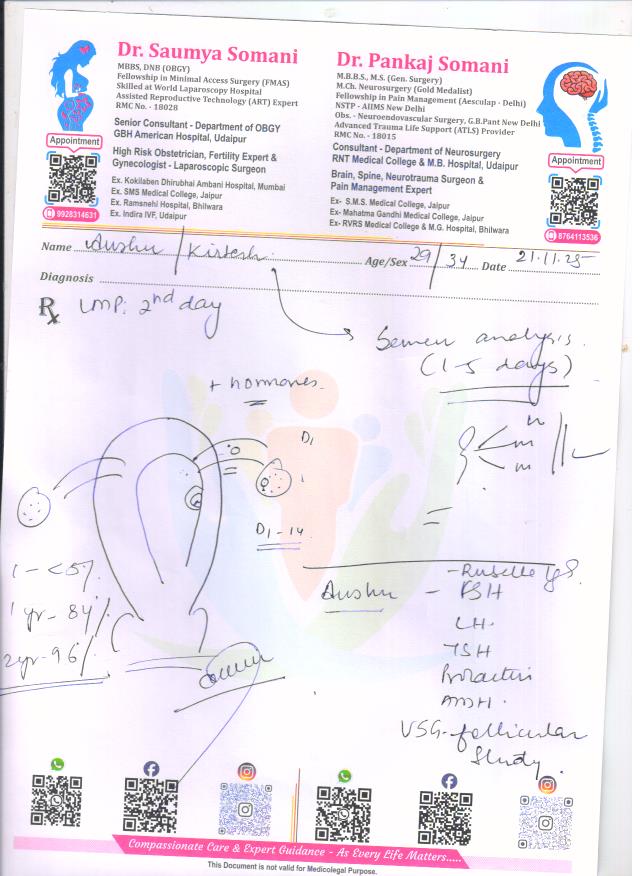 Dr. Saumya Somani
MBBS, DNB (OBGY)
Fellowship in Minimal Access Surgery (FMAS)
Skilled at World Laparoscopy Hospital
Assisted Reproductive Technology (ART) Expert
RMC No. - 18028
Senior Consultant - Department of OBGY
GBH American Hospital, Udaipur
High Risk Obstetrician, Fertility Expert &
Gynecologist - Laparoscopic Surgeon
Ex. Kokilaben Dhirubhai Ambani Hospital, Mumbai
Ex. SMS Medical College, Jaipur
Ex. Ramsnehi Hospital, Bhilwara
Ex. Indira IVF, Udaipur
Appointment
9928314631
Dr. Pankaj Somani
M.B.B.S., M.S. (Gen. Surgery)
M.Ch. Neurosurgery (Gold Medalist)
Fellowship in Pain Management (Aesculap - Delhi)
NSTP - AIIMS New Delhi
Obs. - Neuroendovascular Surgery, G.B.Pant New Delhi
Advanced Trauma Life Support (ATLS) Provider
RMC No. - 18015
Consultant - Department of Neurosurgery
RNT Medical College & M.B. Hospital, Udaipur
Brain, Spine, Neurotrauma Surgeon &
Pain Management Expert
Ex- S.M.S. Medical College, Jaipur
Ex- Mahatma Gandhi Medical College, Jaipur
Ex- RVRS Medical College & M.G. Hospital, Bhilwara
Appointment
8764113536
Name Anshu / Kirtesh Age/Sex 29/34 Date 21.11.25
Diagnosis
Rx LMP: 2nd day
Semen analysis.
(1-5 days)
+ hormones
D1
D1-14
1 - <5%
1 yr - 84%
2yr - 96%
Anshu - FSH
LH
TSH
Prolactin
AMH
USG - follicular
study
Compassionate Care & Expert Guidance - As Every Life Matters.....
This Document is not valid for Medicolegal Purpose.